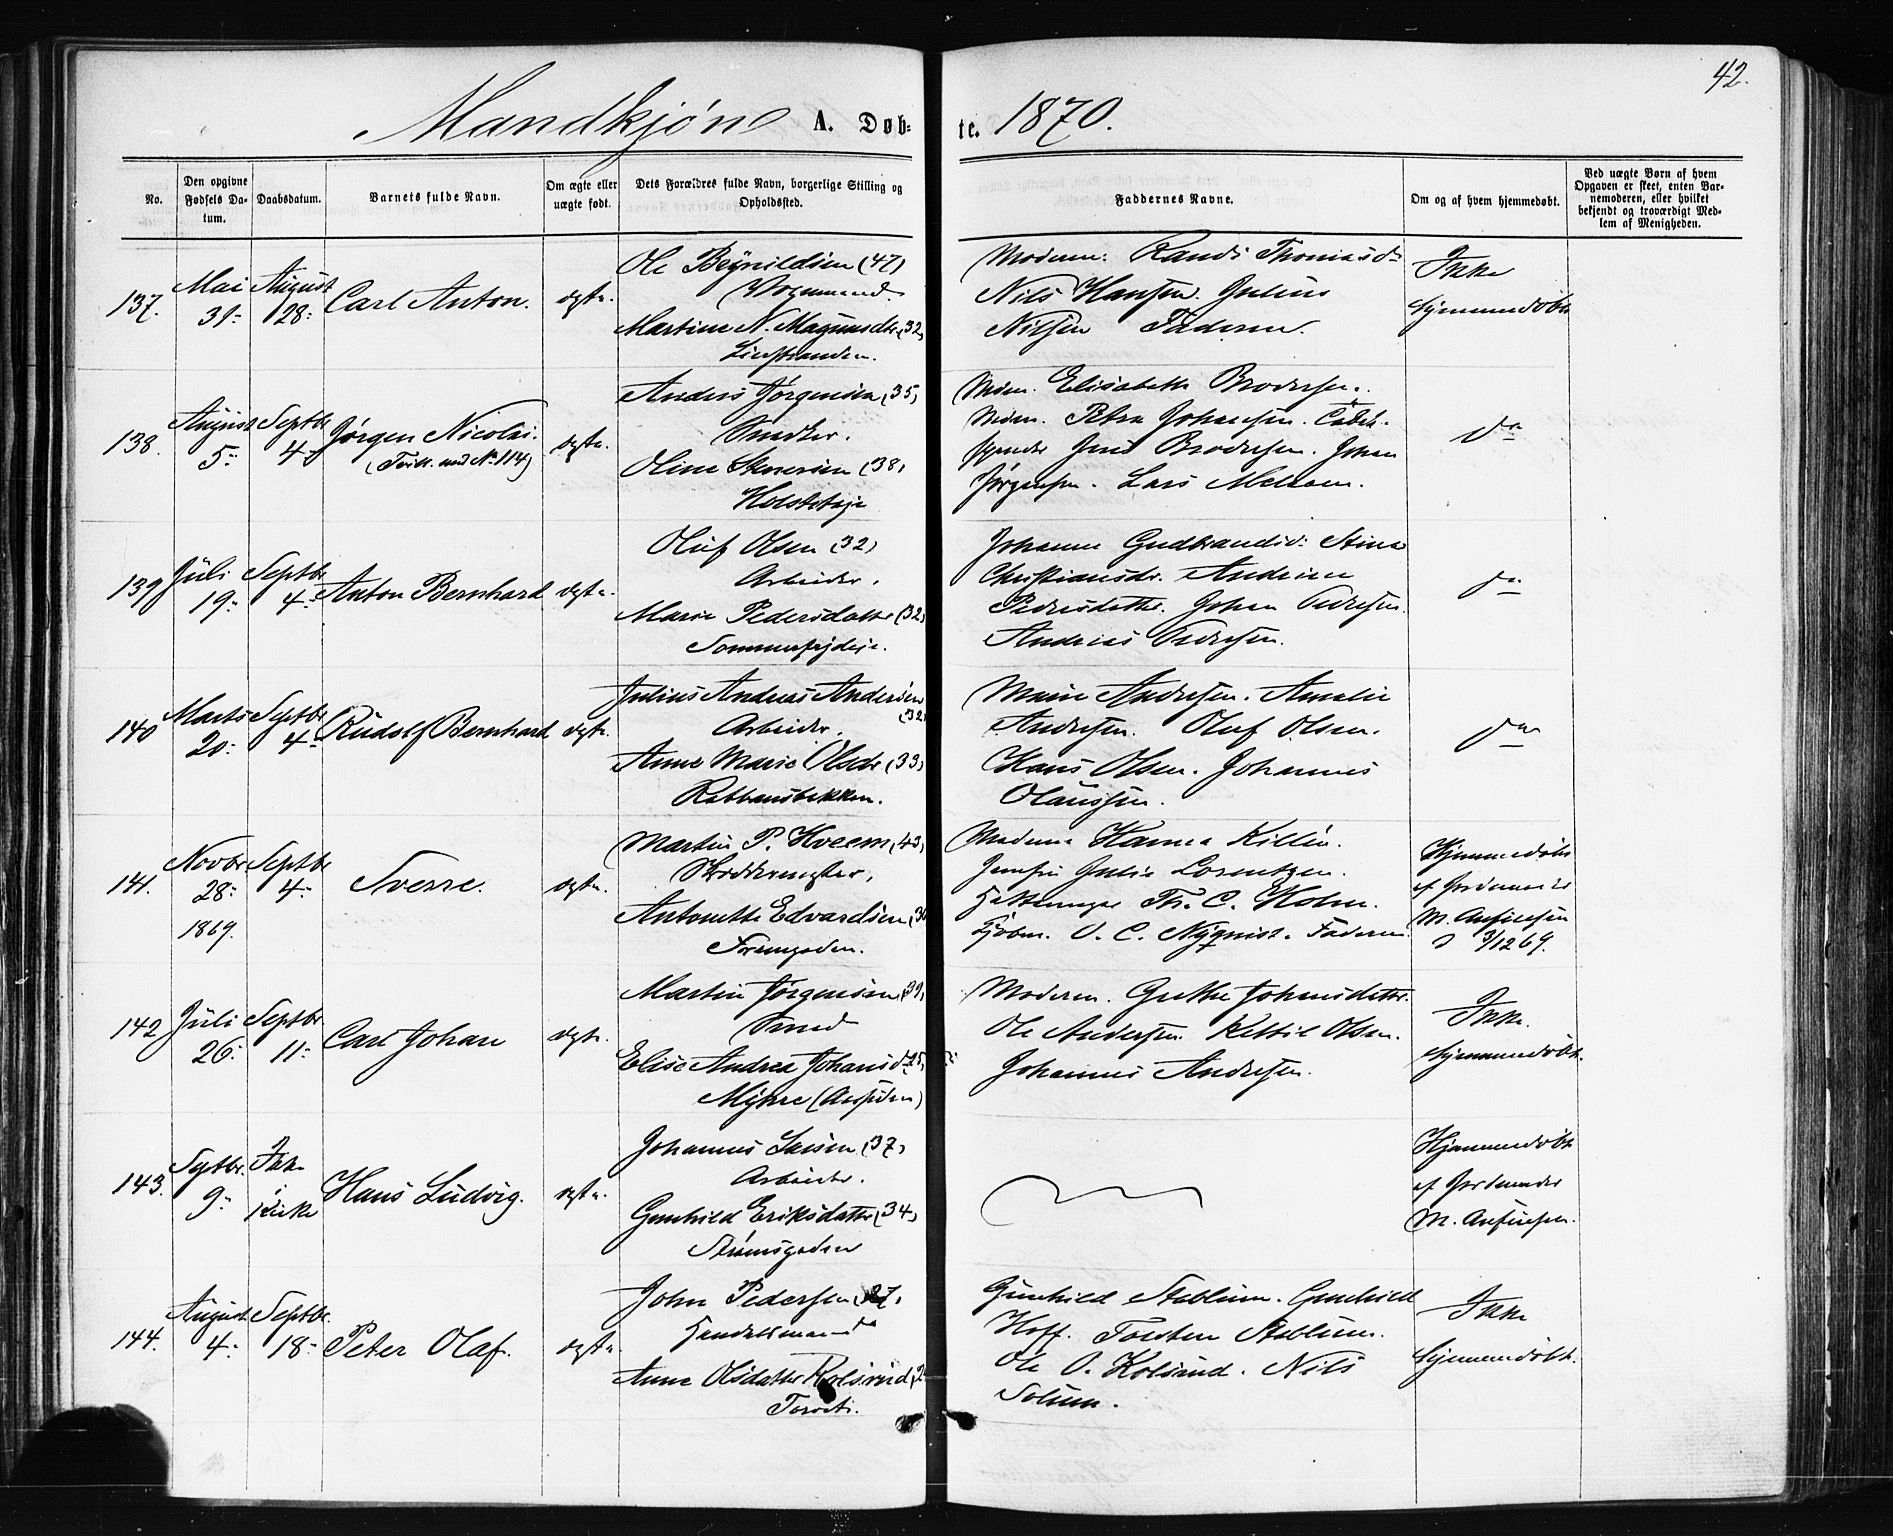 42.
Mandkjøn A. Døb- te. 1870.
No.
Den opgivne Fødsels Da-tum.
Daabsdatum.
Barnets fulde Navn.
Om ægte eller uægte født.
Dets Forældres fulde Navn, borgerlige Stilling og Opholdssted.
Faddernes Navne.
Om og af hvem hjemmedøbt.
Ved uægte Børn af hvem Opgaven er skeet, enten Bar-nemoderen, eller hvilket bekjendt og troværdigt Med-lem af Menigheden.
137.
Mai 31-
August 28-
Carl Anton.
ægte.
Ole (47)
Vognmand.
Martine N. Magnusdtr (32)
Moderen. Randi Thomasd.
Nils Hansen. Julius
Nilsen Faderen.
Ikke
hjemmedøbt
138.
August 5-
Septbr 4-
Jørgen Nicolai.
(Tvill. med No 114)
ægte.
Anders Jørgensen (35)
Snedker.
Oline (38)
Mdm. Elisabeth Brodersen.
Mdm. Petra Johansen.
Brodersen. Johan
Jørgensen. Lars
do
139
Juli 19-
Septbr 4-
Anton Bernhard
ægte.
Oluf Olsen (32)
Arbeider.
Marie Pedersdatter (32)
Johanne Gudbrandsd. Stina
Christiansdr. Andrine
Pedersdatter. Johan Pedersen.
Andreas Pedersen.
do
140
Marts 20-
Septbr 4-
Rudolf Bernhard
ægte.
Julius Andreas Andersen (32)
Arbeider.
Anne Marie Olsdr (33)
Marie Andersen. Amalie
Andersen. Oluf Olsen.
Hans Olsen. Johannes
Olaussen.
do
141.
Novbr 28- 1869.
Septbr 4-
Sverre.
ægte.
Martin P. Hveem (43)
Skræddermester.
Antonette Edvardsen
Strømgaden.
Madame Hanna Killén.
Jomfru Julie Lorentzen.
Th. C. Holm.
Kjøbm. O. C. Nyqvist. Faderen.
Hjemmedøbt
af Jordemoder
M. Anfinsen
3/12 69.
142
Juli 26-
Septbr 11-
Carl Johan
ægte.
Martin Jørgensen (39)
Smed
Elise Andrea Johansd.
Myhre
Moderen. Grethe Johansdatter.
Ole Andersen Kittil Olsen.
Johannes Andersen.
Ikke
hjemmedøbt.
143.
Septbr. 9-
Ikke i Kirke
Hans Ludvig.
ægte.
Johannes Larsen (37)
Arbeider.
Gunhild Eriksdatter (34)
Strømsgaden
Hjemmedøbt
af Jordemoder
M. Anfinsen.
144.
August 4-
Septbr. 18-
Peter Olaf.
ægte.
John Pedersen
Handelsmand
Anne Olsdatter Kolsrud
Torvet.
Gunhild Stablum. Gunhild
Hoff. Torsten Stablum.
Ole O. Kolsrud. Nils
Solum.
Ikke
hjemmedøbt.